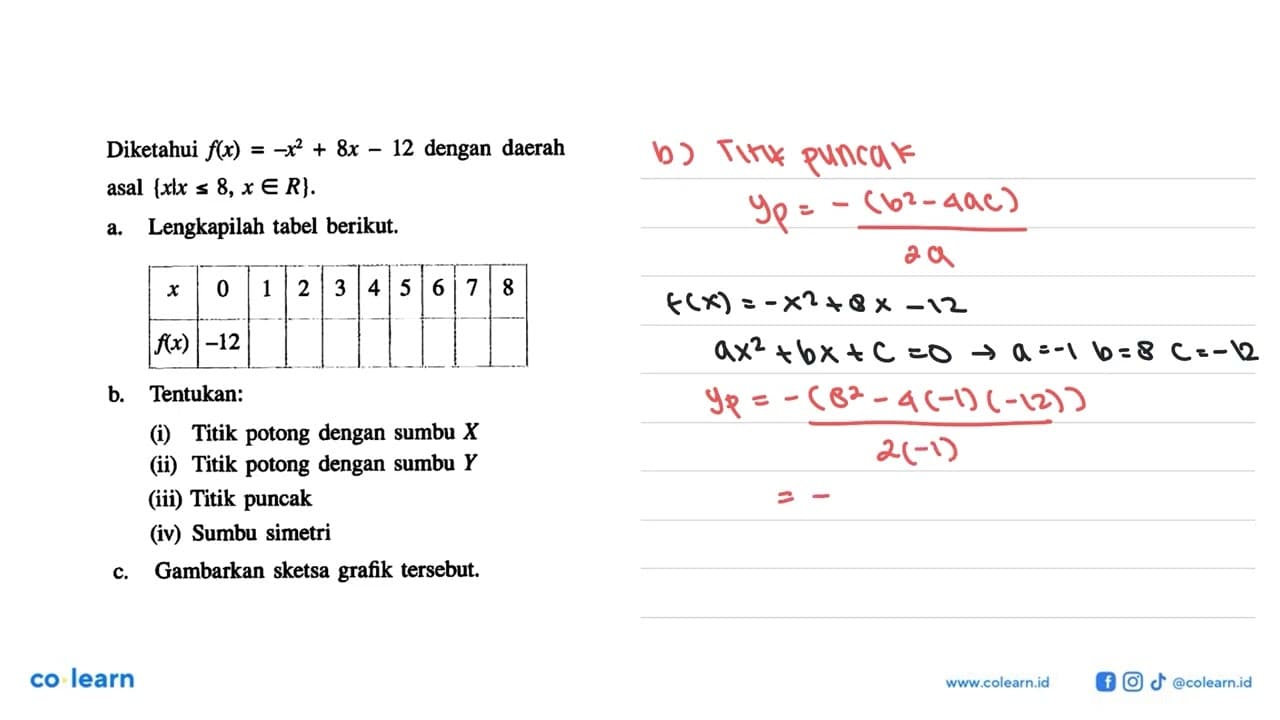 Diketahui f(x) = –x² + 8x – 12 dengan daerah
asal {x|x ≤ 8, x ∈ R}.
a. Lengkapilah tabel berikut.
x 0 1 2 3 4 5 6 7 8
f(x) –12
b. Tentukan:
(i) Titik potong dengan sumbu X
(ii) Titik potong dengan sumbu Y
(iii) Titik puncak
(iv) Sumbu simetri
c. Gambarkan sketsa grafik tersebut.
b) Titik puncak
yp = - (b² - 4ac)
2a
f(x) = -x² + 8x - 12
ax² + bx + c = 0 → a = -1 b = 8 c = -12
yp = - (8² - 4(-1)(-12))
2(-1)
= -
co·learn
www.colearn.id
@colearn.id